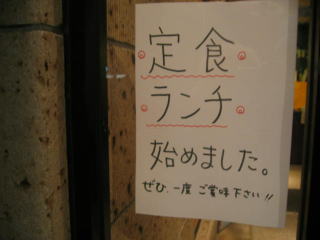 定食
ランチ
始めました。
ぜひ、一度ご賞味下さい!!